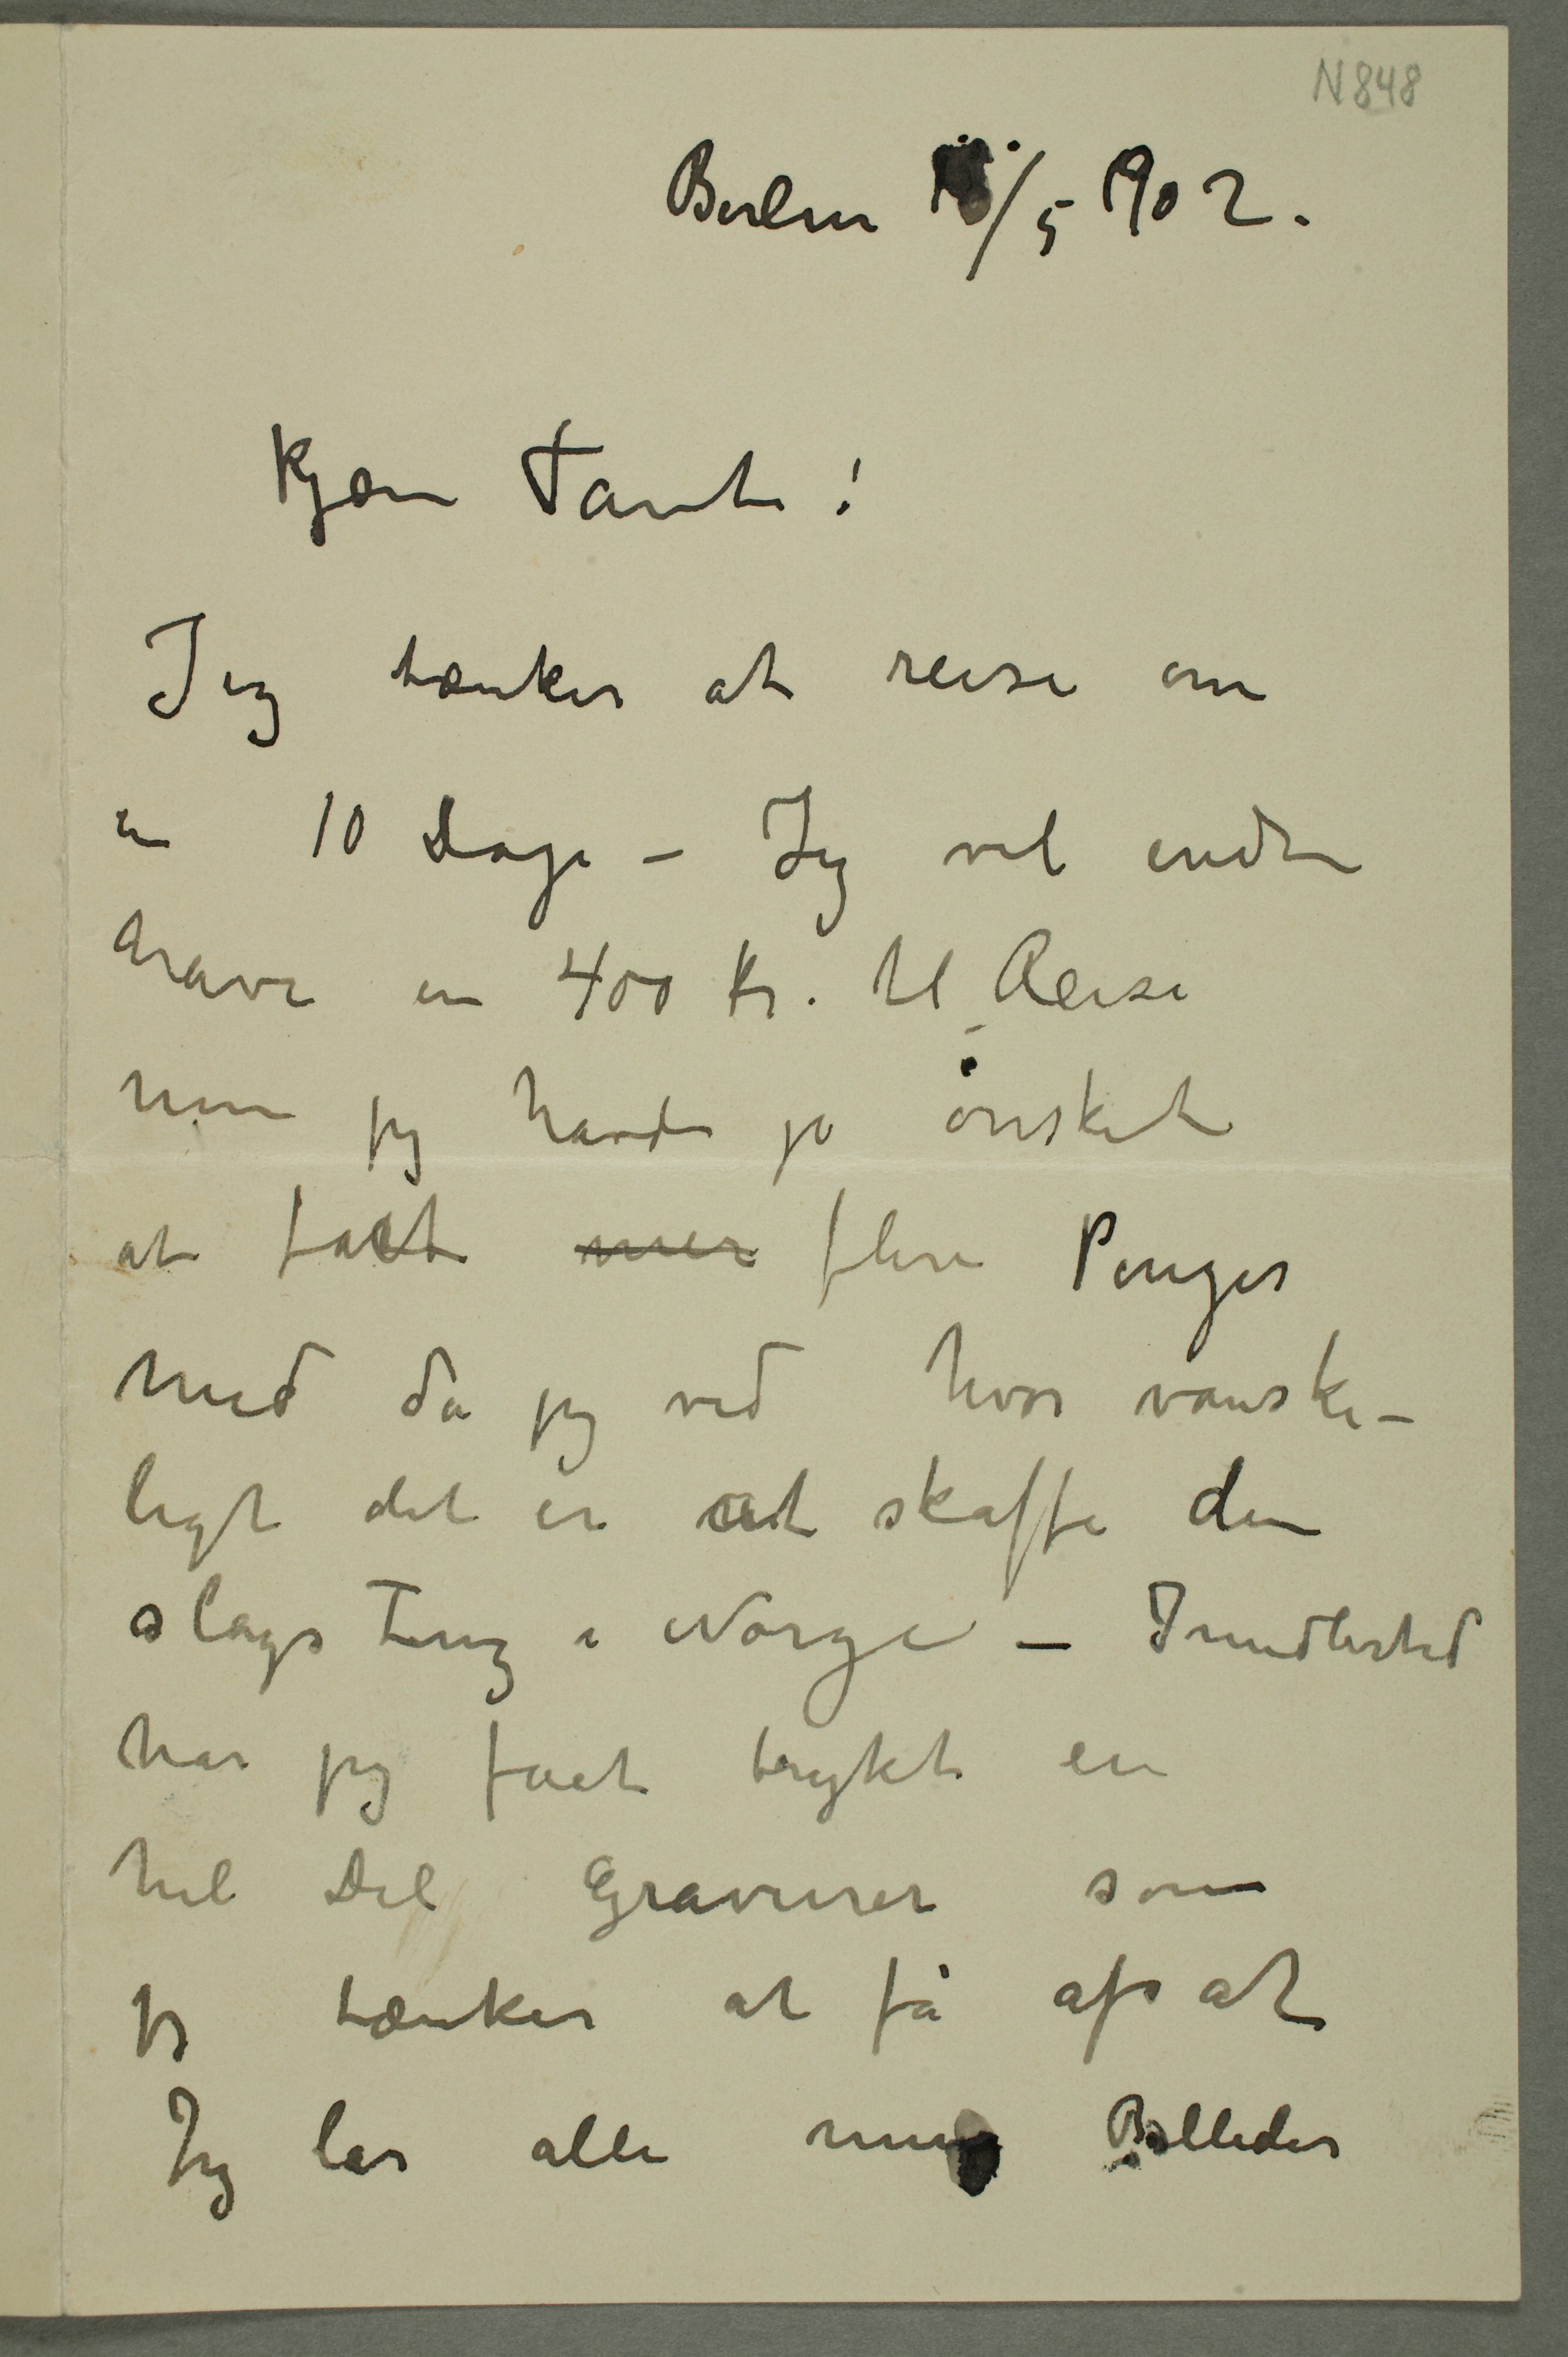 N 848
Berlin /5 1902.
Kjære Tante!
Jeg tænker at reise om
en 10 Dage – Jeg vil endnu
have en 400 Kr. til Reise
men jeg havde jo ønsket
at faat mer flere Penger
med da jeg ved hvor vanske-
ligt det er at skaffe den
slags Ting i Norge – Imidlertid
har jeg faaet trykt en
hel Del Gravurer som
jeg tænker at få afsat
Jeg lar alle mine Billeder